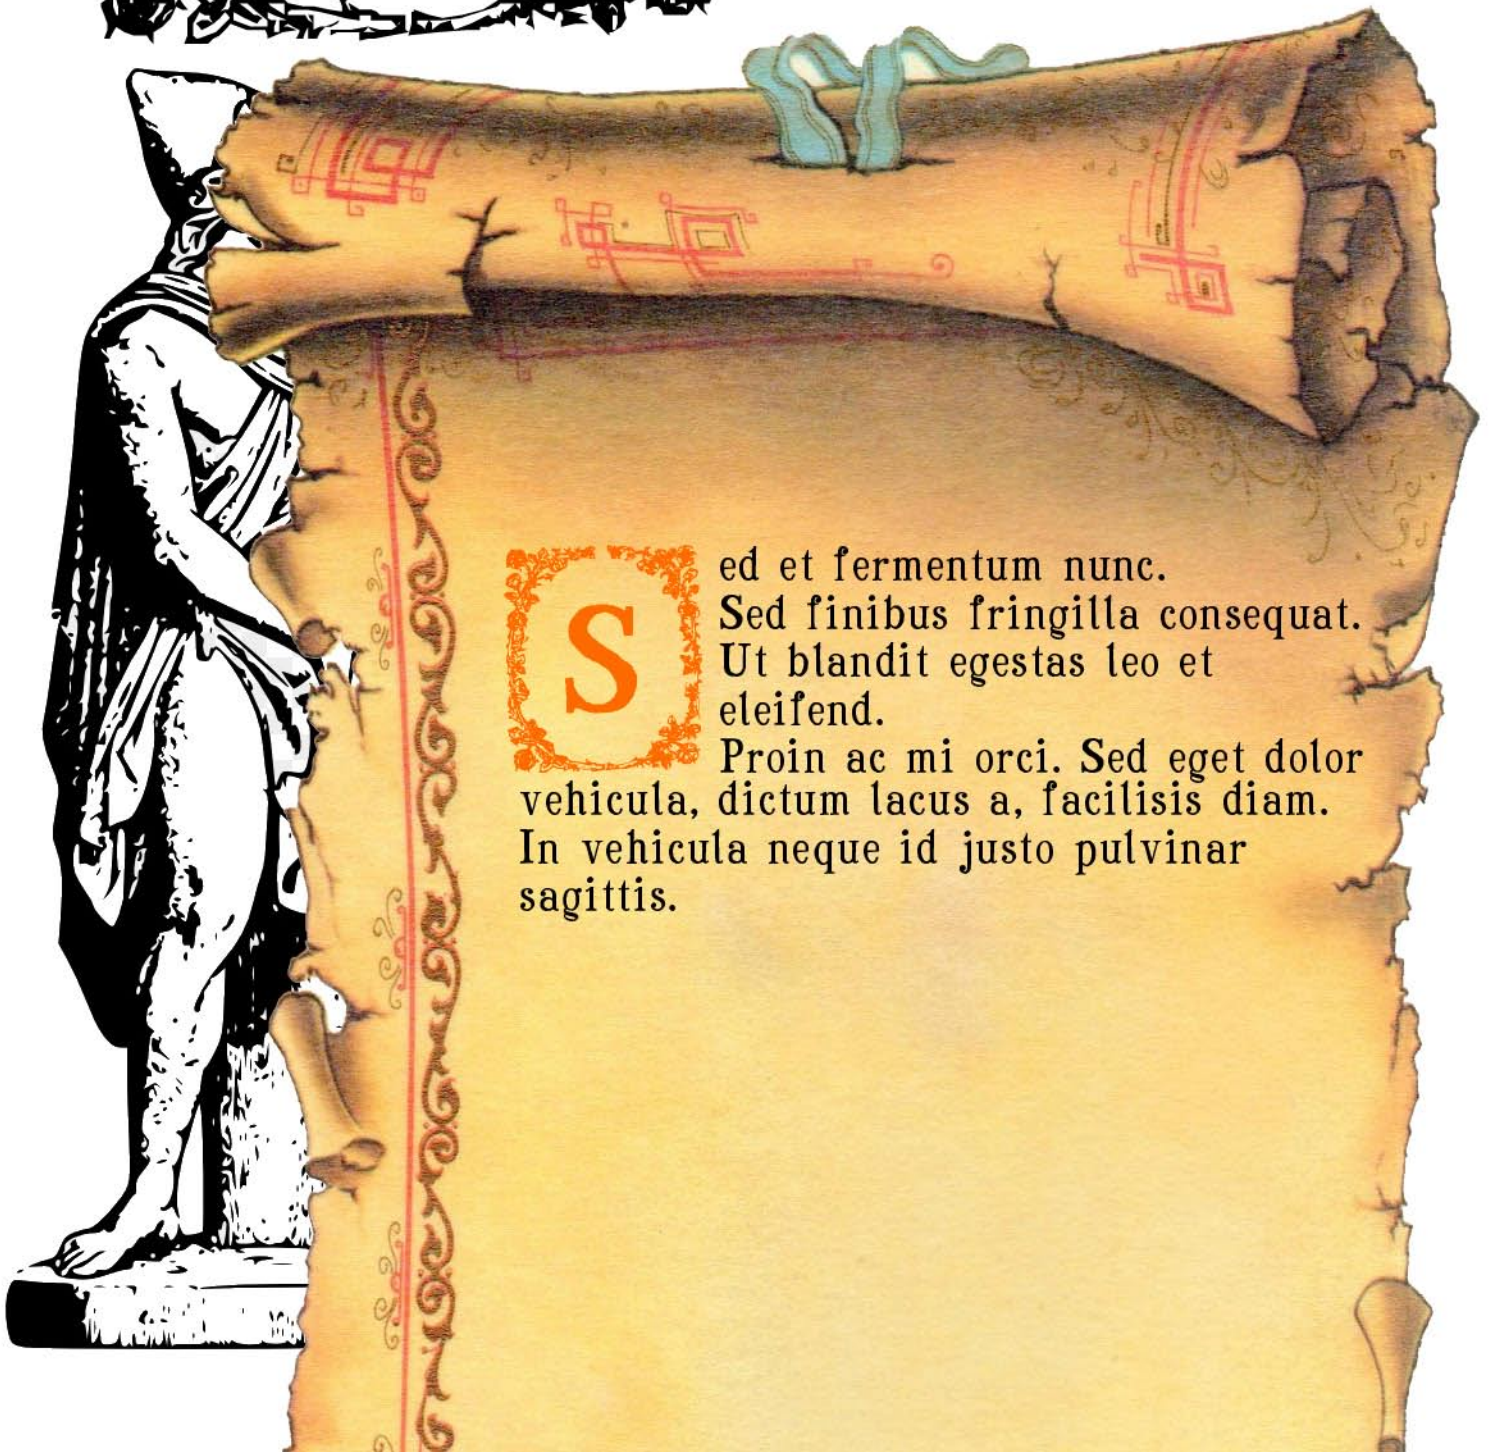 Sed et fermentum nunc.
Sed finibus fringilla consequat.
Ut blandit egestas leo et
eleifend.
Proin ac mi orci. Sed eget dolor
vehicula, dictum lacus a, facilisis diam.
In vehicula neque id justo pulvinar
sagittis.